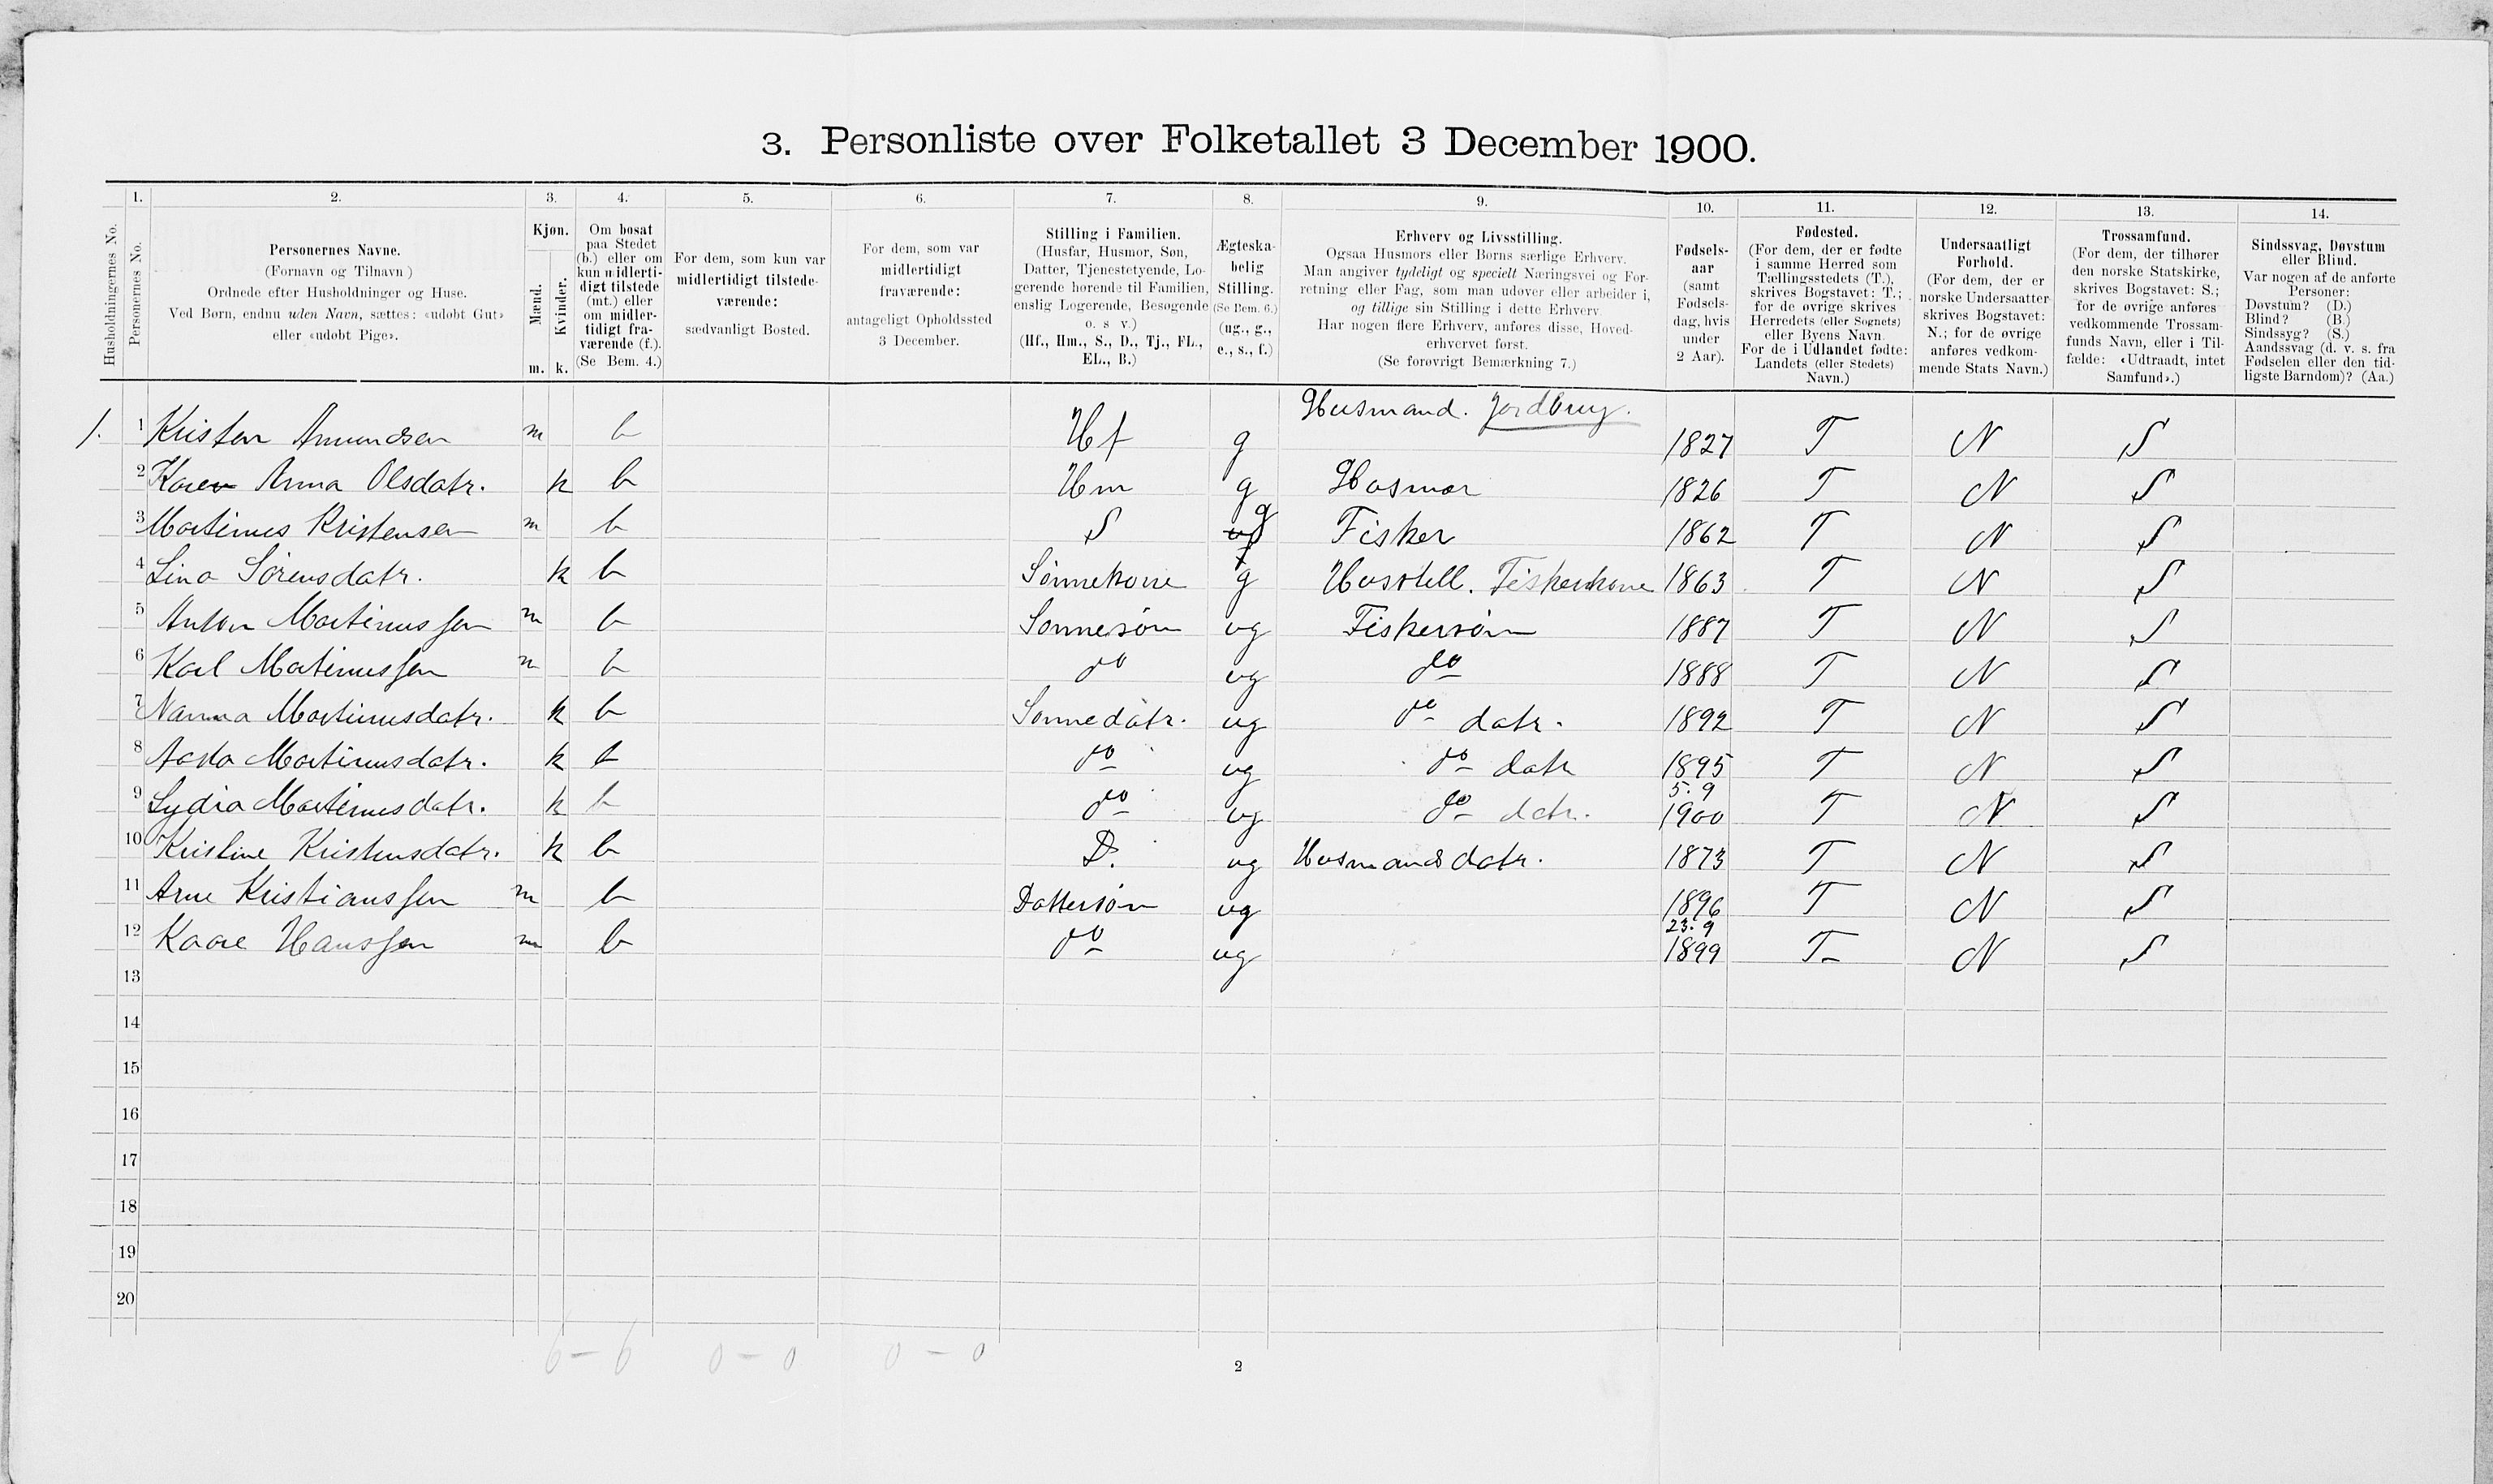 3. Personliste over Folketallet 3 December 1900.
1. 2. 3. 4. 5. 6. 7. 8. 9. 10. 11. 12. 13. 14.
Husholdningernes No.
Personernes No.
Personernes Navne.
(Fornavn og Tilnavn)
Ordnede efter Husholdninger og Huse.
Ved Børn, endnu uden Navn, sættes: «udøbt Gut»
eller «udøbt Pige».
Kjøn.
Mænd.
Kvinder.
m. k.
Om bosat
paa Stedet
(b.) eller om
kun midlerti-
digt tilstede
(mt.) eller
om midler-
tidigt fra-
værende (f.).
(Se Bem. 4.)
For dem, som kun var
midlertidigt tilstede-
værende:
sædvanligt Bosted.
For dem, som var
midlertidigt
fraværende:
antageligt Opholdssted
3 December.
Stilling i Familien.
(Husfar, Husmor, Søn,
Datter, Tjenestetyende, Lo-
gerende hørende til Familien,
enslig Logerende, Besøgende
o. s. v.)
(Hf., Hm., S., D., Tj., FL.,
EL., B.)
Ægteska-
belig
Stilling.
(Se Bem. 6.)
(ug., g.,
e., s., f.)
Erhverv og Livsstilling.
Ogsaa Husmors eller Børns særlige Erhverv.
Man angiver tydeligt og specielt Næringsvei og For-
retning eller Fag, som man udøver eller arbeider i,
og tillige sin Stilling i dette Erhverv
Har nogen flere Erhverv, anføres disse, Hoved-
erhvervet først.
(Se forøvrigt Bemærkning 7.)
Fødsels-
aar
(samt
Fødsels-
dag, hvis
under
2 Aar).
Fødested.
(For dem, der er fødte
i samme Herred som
Tællingsstedets (T.),
skrives Bogstavet: T.;
for de øvrige skrives
Herredets (eller Sognets)
eller Byens Navn.
For de i Udlandet fødte:
Landets (eller Stedets)
Navn.)
Undersaatligt
Forhold.
(For dem, der er
norske Undersaatter
skrives Bogstavet:
N.; for de øvrige
anføres vedkom-
mende Stats Navn.)
Trossamfund.
(For dem, der tilhører
den norske Statskirke,
skrives Bogstavet: S.;
for de øvrige anføres
vedkommende Trossam-
funds Navn, eller i Til-
fælde: «Udtraadt, intet
Samfund».)
Sindssvag, Døvstum
eller Blind.
Var nogen af de anførte
Personer:
Døvstum? (D.)
Blind? (B.)
Sindssyg? (S.)
Aandssvag (d. v. s. fra
Fødselen eller den tid-
ligste Barndom)? (Aa.)
Husmand. Jordbrug.
1. 1 Kristen Amundsen m b Hf g 1827 T N S
2 Karen Anna Olsdatr. k b Hm g Husmor 1826 T N S
3 Martinus Kristensen m b S ug g Fisker 1862 T N S
4 Lina Sörensdatr. k b Sönnekone g Husstell. Fiskerkone 1863 T N S
5 Anton Martinussen m b Sønnesøn ug Fiskersøn 1887 T N S
6 Karl Martinussen m b do ug do 1888 T N S
7 Nanna Martinusdatr. k b Sønnedatr. ug do datr. 1892 T N S
8 Martinusdatr. k b do ug do datr 1895 T N S
9 Lydia Martinusdatr. k b do ug do datr. 5. 9 1900 T N S
10 Kristine Kristensdatr. k b D. ug Husmandsdatr. 1873 T N S
11 Arne Kristianssen m b Dattersøn ug 1896 T N S
12 Kaare Hanssen m b do ug 23. 9 1899 T N S
13
14
15
16
17
18
19
20
6 - 6 0 - 0 0 - 0
2